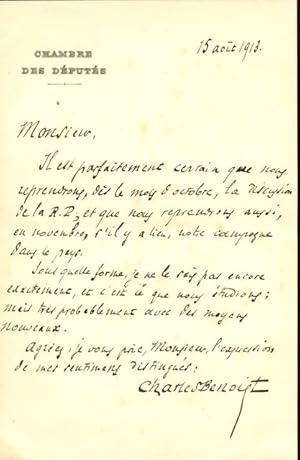 CHAMBRE
DES DÉPUTÉS
15 août 1913.
Monsieur,
Il est parfaitement certain que nous
reprendrons, dès le mois d'octobre, la discussion
de la R.P., et que nous reprendrons aussi,
en novembre, s'il y a lieu, notre campagne
dans le pays.
Sous quelle forme, je ne le sais pas encore
exactement, et c'est ce que nous étudions;
mais très probablement avec des moyens
nouveaux.
Agréez, je vous prie, Monsieur, l'expression
de mes sentiments distingués:
Charles Benoist